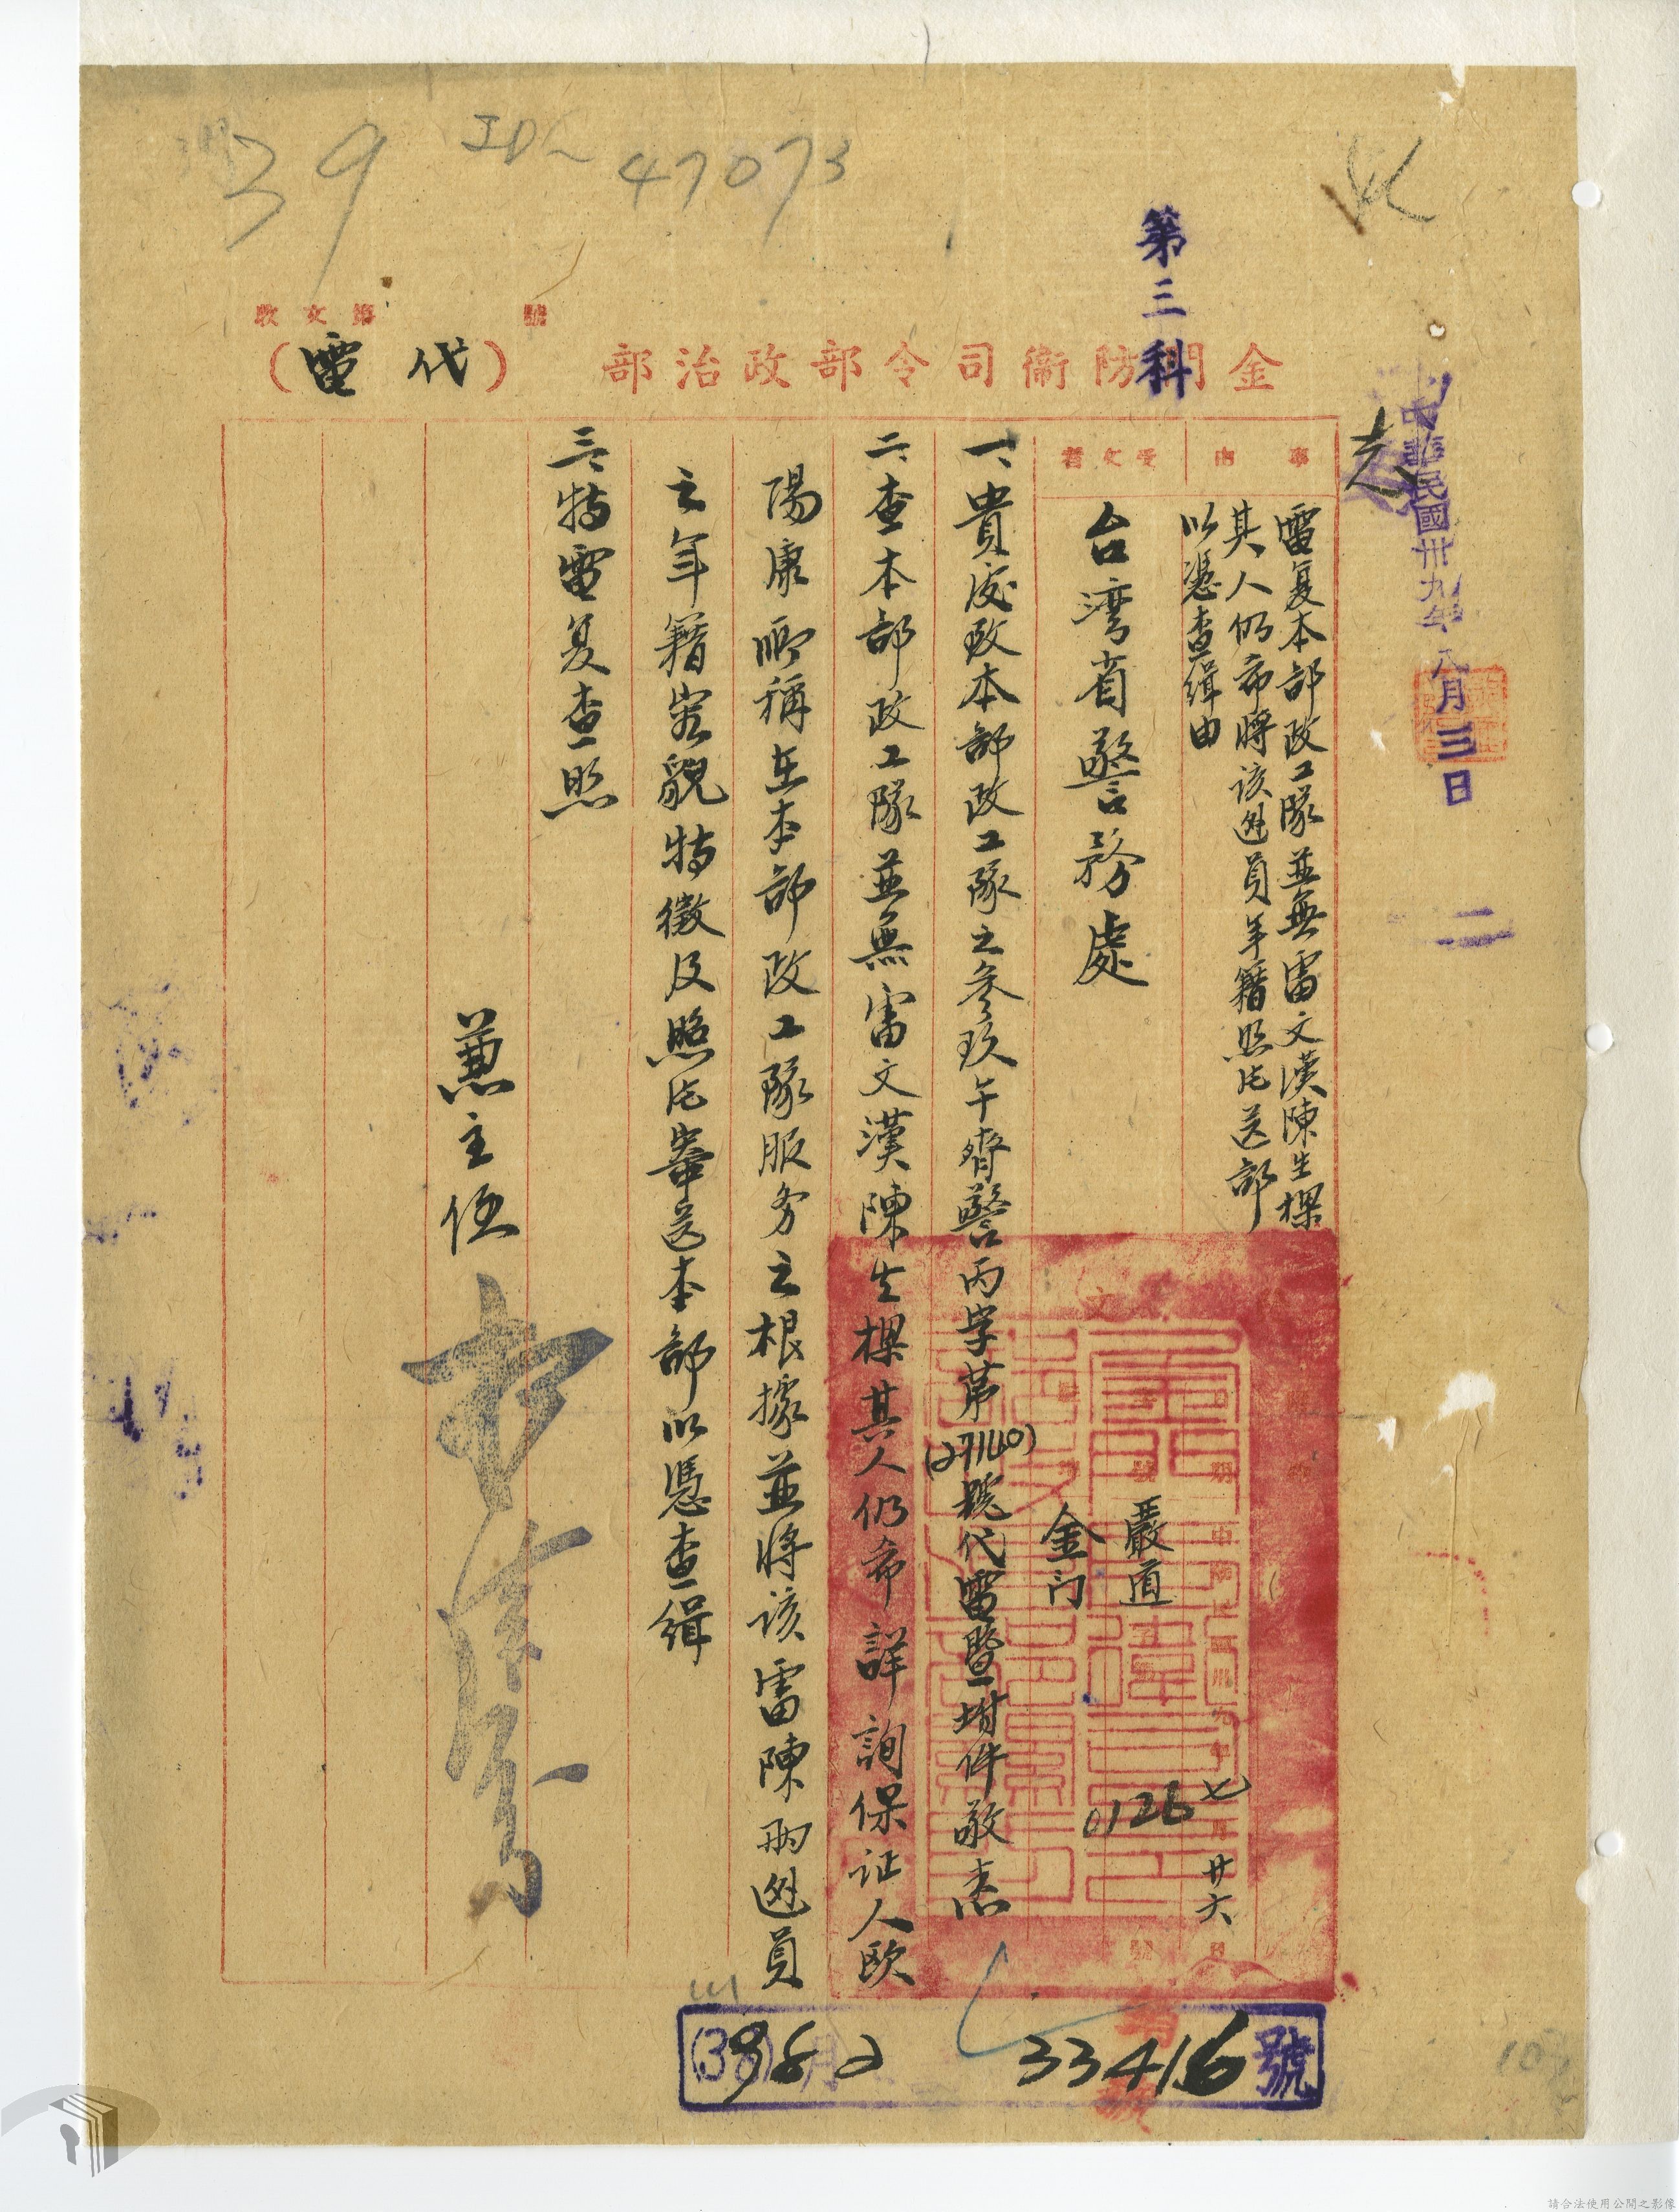 39
ID~
47073
第三科
收文第　　　號
金門防衞司令部政治部（代電）
中華民國卅九年八月三日
事由
電复本部政工隊並無雷文漢陳生樑
其人仍希將該逃員年籍照片送部
以憑查緝由
受文者
台湾省警務處
嚴道
金门
0126
七
廿六
一、貴處致本部政工隊之叁玖午齊警丙字第(27140)號代電暨坿件敬悉
二、查本部政工隊並無雷文漢陳生樑其人仍希詳詢保证人欧
陽康所稱在本部政工隊服务之根據並將該雷陳两逃員
之年籍容貌特徵及照片寄送本部以憑查緝
三、特電复查照
兼主任
(39)
8
月
2
33416
號
請合法使用公開之影像